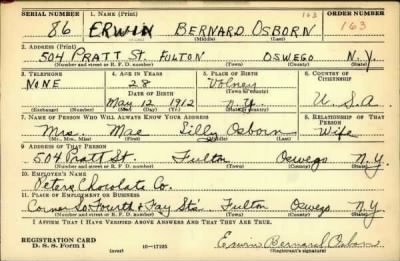 SERIAL NUMBER 1. NAME (Print) ORDER NUMBER
163
86 ERWIN BERNARD OSBORN 163
(First) (Middle) (Last)
2. ADDRESS (Print)
504 PRATT St. FULTON OSWEGO N.Y.
(Number and street or R. F. D. number) (Town) (County) (State)
3. TELEPHONE 4. AGE IN YEARS 5. PLACE OF BIRTH 6. COUNTRY OF CITIZENSHIP
NONE 28 Volney
DATE OF BIRTH (Town or county)
May 12 1912 N.Y. U.S.A.
(Exchange) (Number) (Mo.) (Day) (Yr.) (State or country)
7. NAME OF PERSON WHO WILL ALWAYS KNOW YOUR ADDRESS 8. RELATIONSHIP OF THAT PERSON
Mrs. Mae Lilly Osborn Wife
(Mr., Mrs., Miss) (First) (Middle) (Last)
9. ADDRESS OF THAT PERSON
504 Pratt St. Fulton Oswego N.Y.
(Number and street or R. F. D. number) (Town) (County) (State)
10. EMPLOYER'S NAME
Peters Chocolate Co.
11. PLACE OF EMPLOYMENT OR BUSINESS
Corner So. Fourth & Fay Sts. Fulton Oswego N.Y.
(Number and street or R. F. D. number) (Town) (County) (State)
I AFFIRM THAT I HAVE VERIFIED ABOVE ANSWERS AND THAT THEY ARE TRUE.
REGISTRATION CARD
D. S. S. Form 1 (over) 16—17105 Erwin Bernard Osborn
(Registrant's signature)